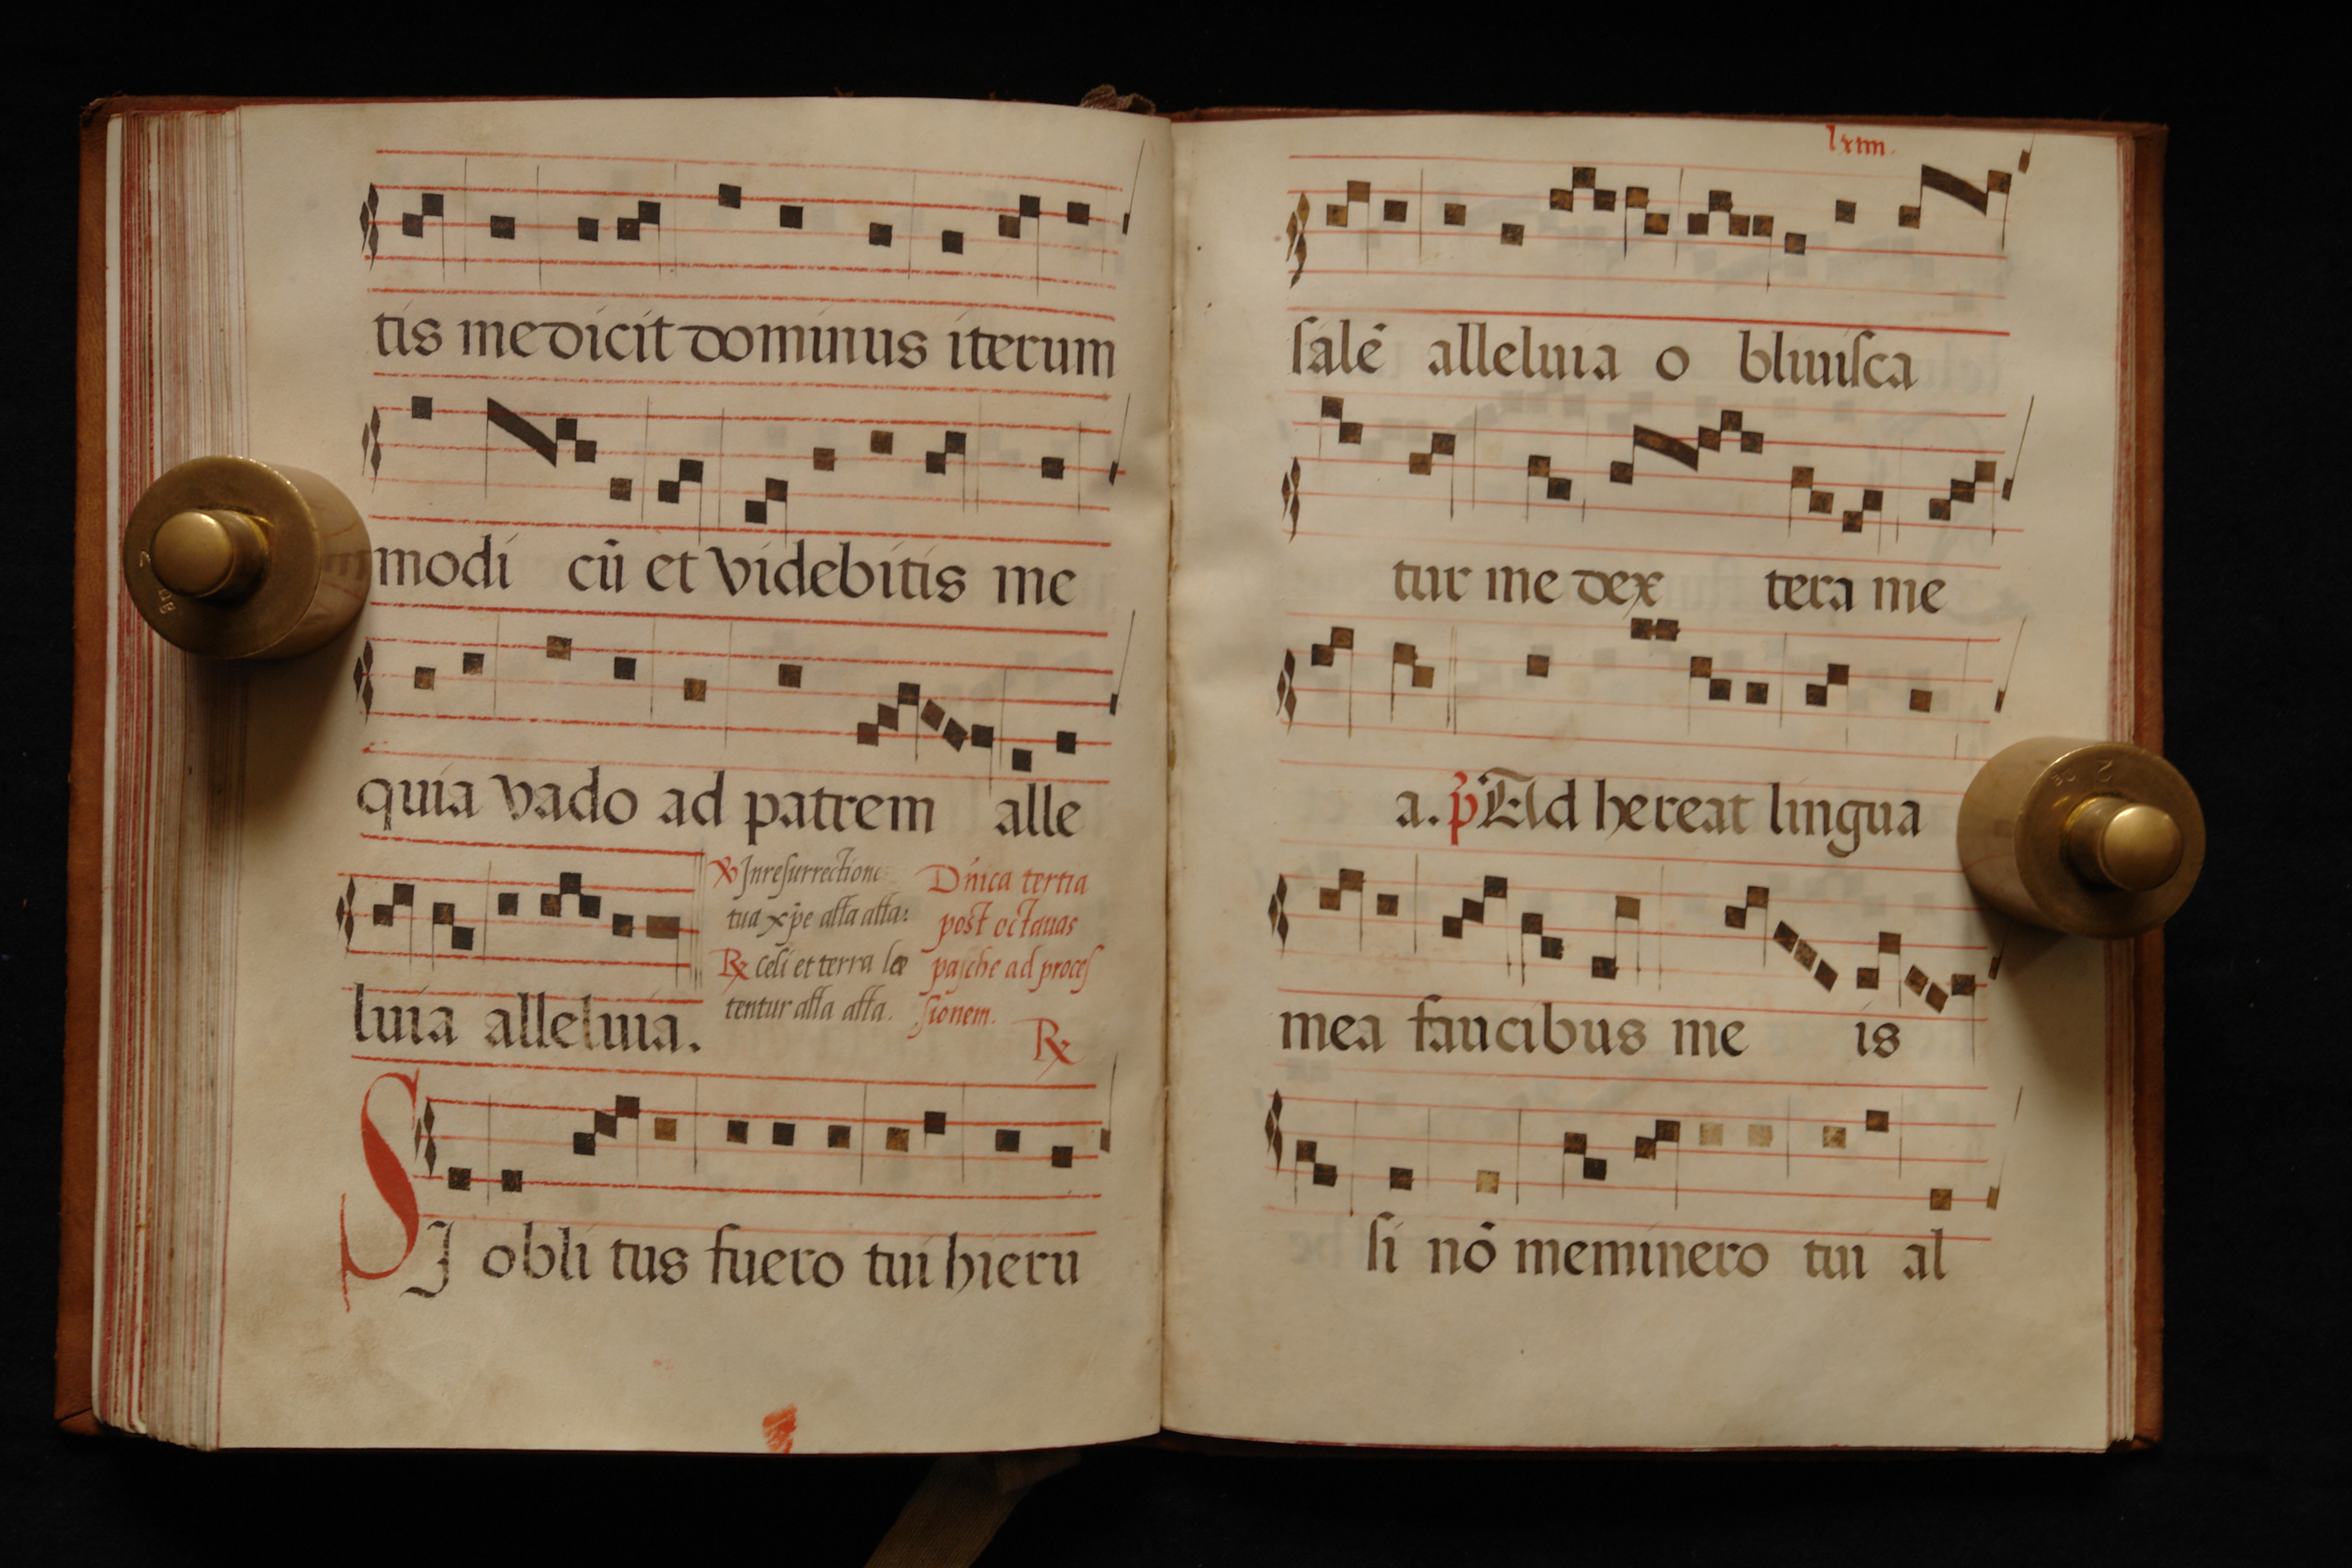 tis me dicit dominus iterum
modi cū et videbitis me
quia vado ad patrem alle
luia alleluia.
℣ In resurrectione
tua xp̄e alĺa alĺa:
℟ celi et terra læ
tentur alĺa alĺa.
Dn̄ica tertia
post octauas
pasche ad proces
sionem.
℟
SI obli tus fuero tui hieru
lxiiii.
salē alleluia o bliuisca
tur me dex tera me
a. p̄ Ad hereat lingua
mea faucibus me is
si nō meminero tui al